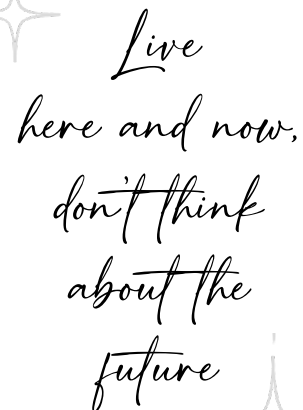 Live
here and now,
don't think
about the
future